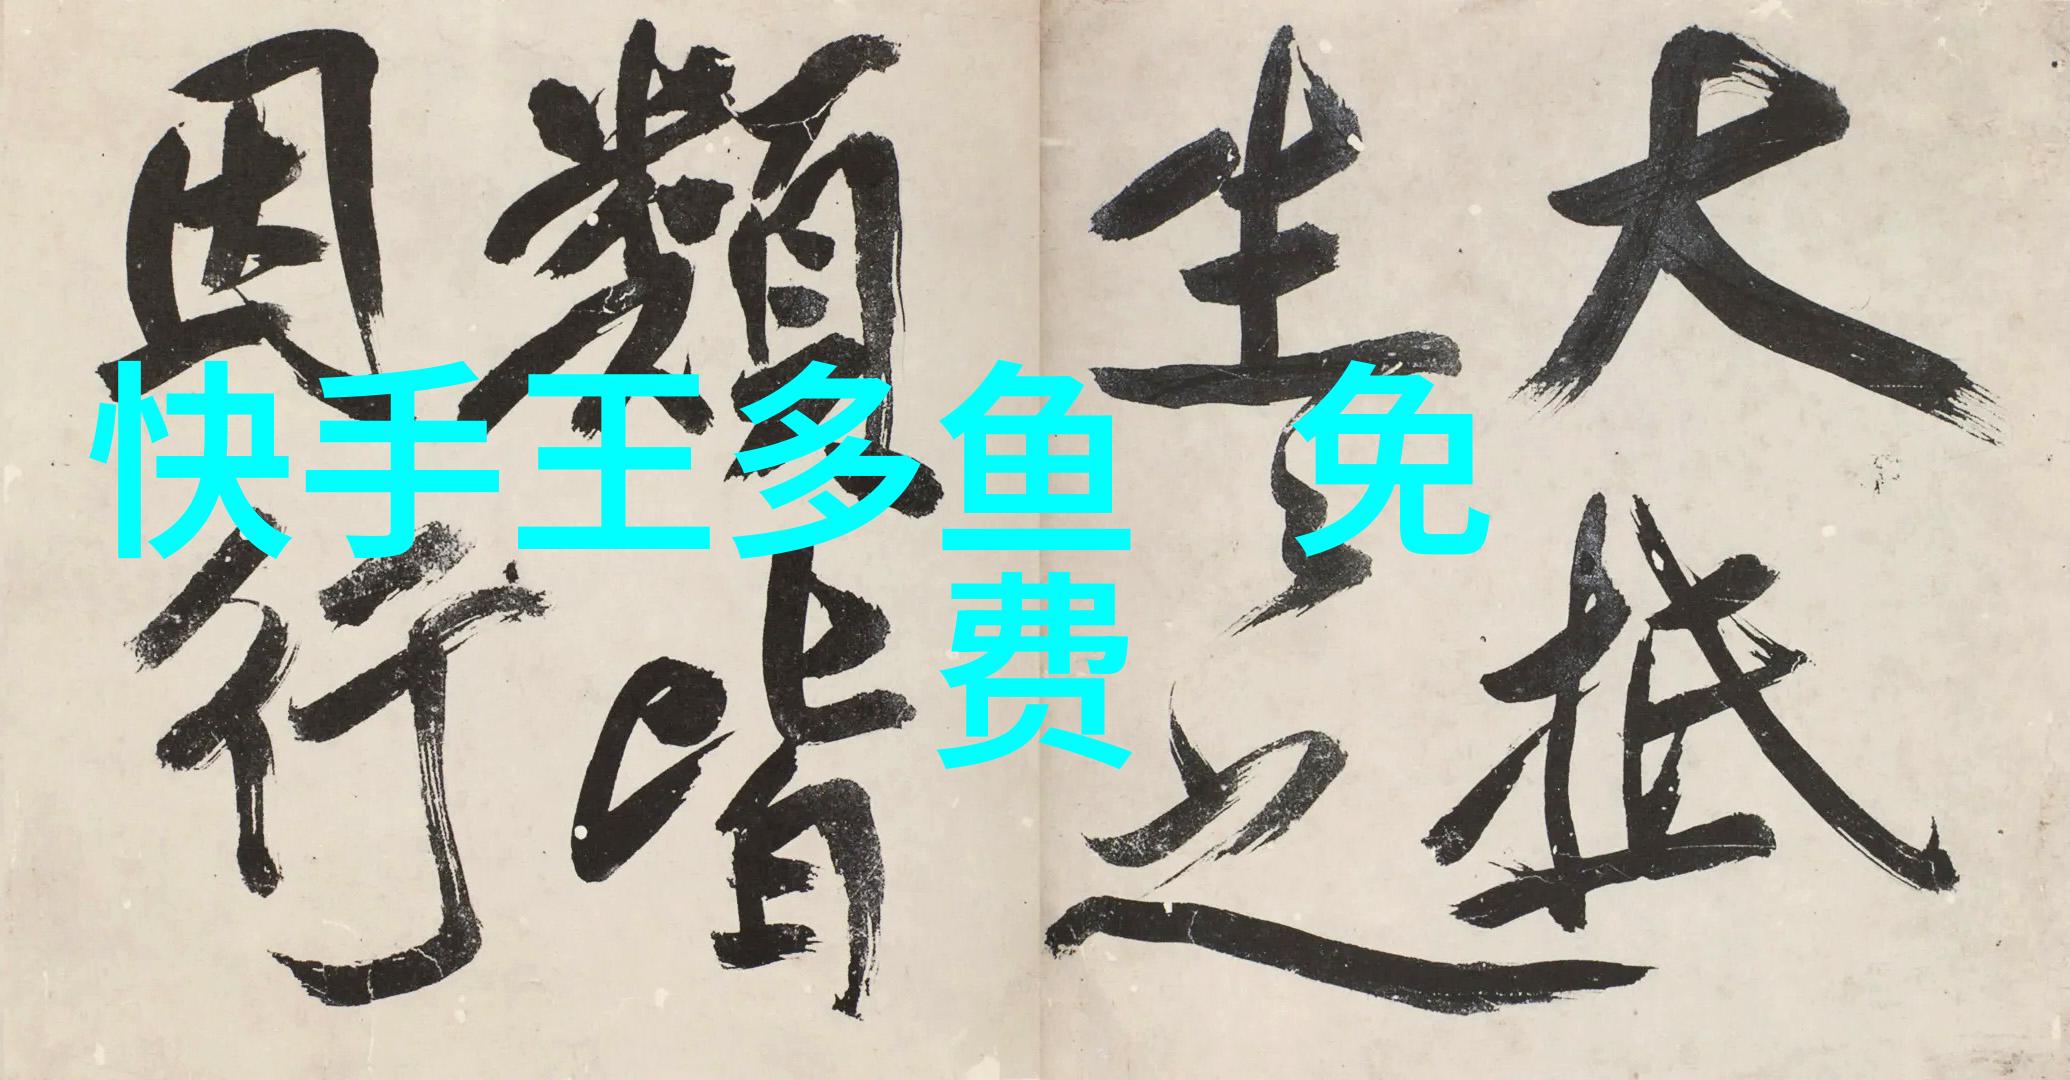 大抵
生之
類皆
因行
快手王多鱼 免
费